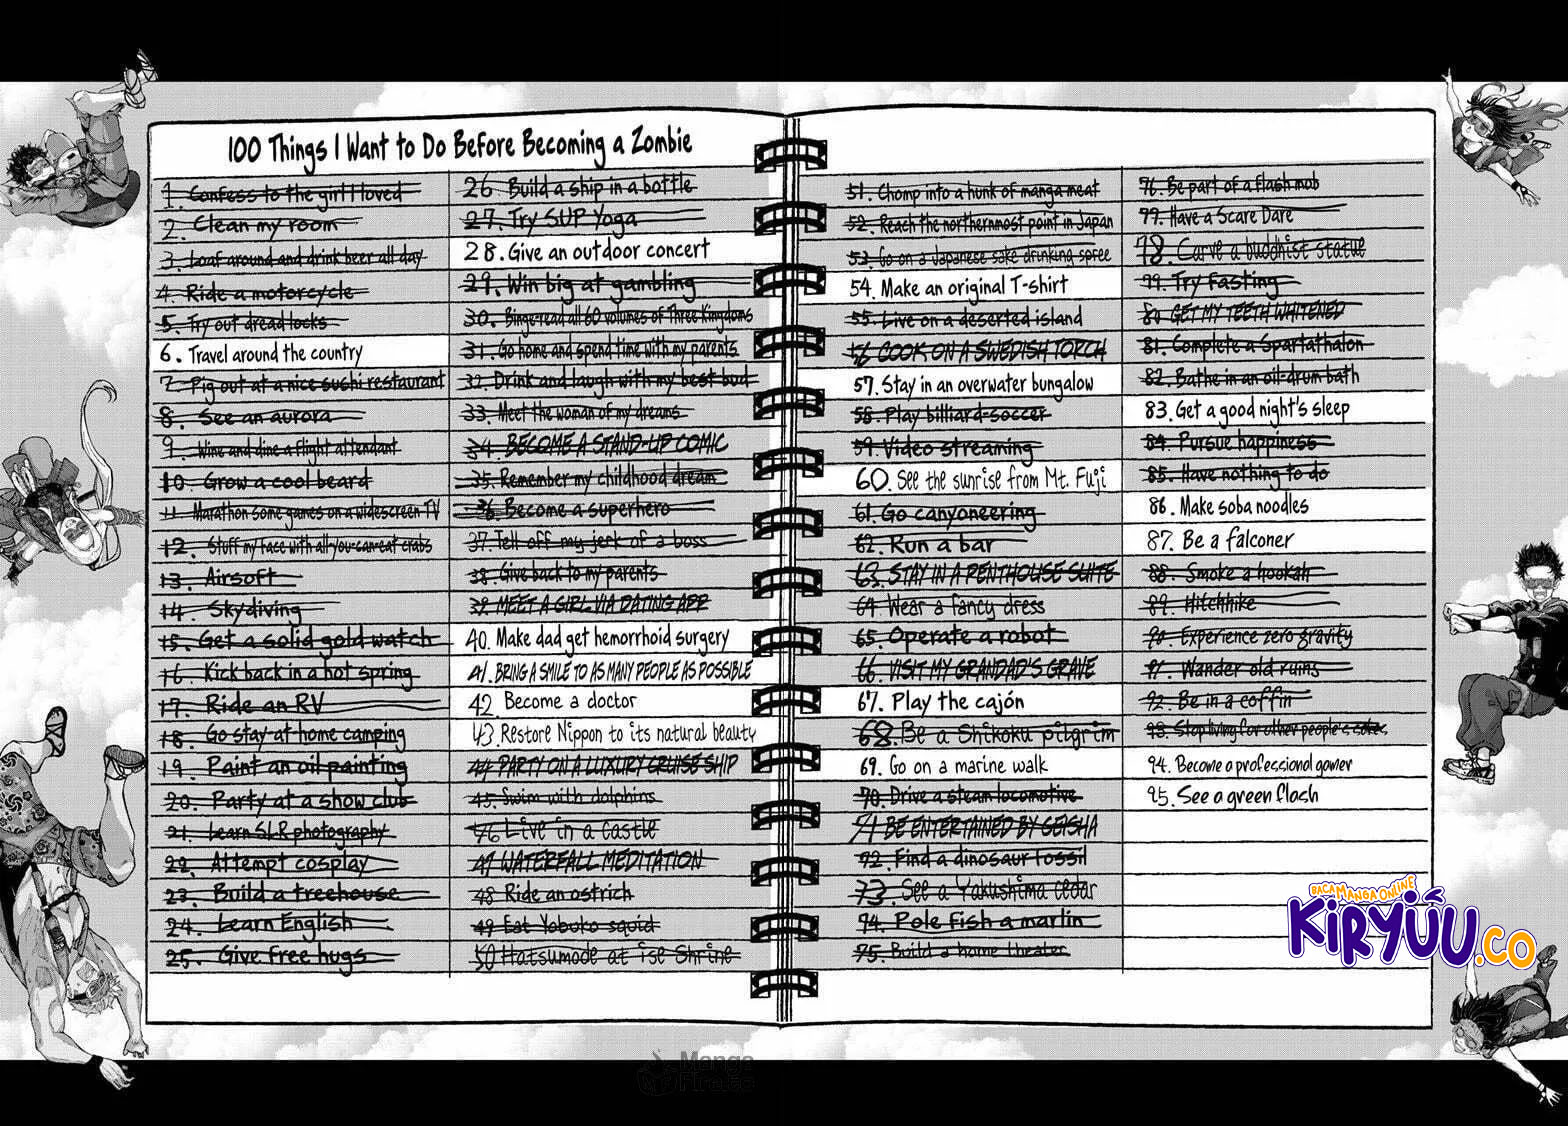 100 Things I Want to Do Before Becoming a Zombie
1. Confess to the girl I loved
2. Clean my room
3. Loaf around and drink beer all day
4. Ride a motorcycle
5. Try out dreadlocks
6. Travel around the country
7. Pig out at a nice sushi restaurant
8. See an aurora
9. Wine and dine a flight attendant
10. Grow a cool beard
11. Marathon some games on a widescreen TV
12. Stuff my face with all-you-can-eat crabs
13. Airsoft
14. Skydiving
15. Get a solid gold watch
16. Kick back in a hot spring
17. Ride an RV
18. Go stay-at-home camping
19. Paint an oil painting
20. Party at a show club
21. Learn SLR photography
22. Attempt cosplay
23. Build a treehouse
24. Learn English
25. Give free hugs
26. Build a ship in a bottle
27. Try SUP Yoga
28. Give an outdoor concert
29. Win big at gambling
30. Binge-read all 60 volumes of Three Kingdoms
31. Go home and spend time with my parents
32. Drink and laugh with my best bud
33. Meet the woman of my dreams
34. BECOME A STAND-UP COMIC
35. Remember my childhood dream
36. Become a superhero
37. Tell off my jerk of a boss
38. Give back to my parents
39. MEET A GIRL VIA DATING APP
40. Make dad get hemorrhoid surgery
41. BRING A SMILE TO AS MANY PEOPLE AS POSSIBLE
42. Become a doctor
43. Restore Nippon to its natural beauty
44. PARTY ON A LUXURY CRUISE SHIP
45. Swim with dolphins
46. Live in a castle
47. WATERFALL MEDITATION
48. Ride an ostrich
49. Eat Yobuko squid
50. Hatsumode at ise Shrine
51. Chomp into a hunk of manga meat
52. Reach the northernmost point in Japan
53. Go on a Japanese sake drinking spree
54. Make an original T-shirt
55. Live on a deserted island
56. COOK ON A SWEDISH TORCH
57. Stay in an overwater bungalow
58. Play billiard-soccer
59. Video streaming
60. See the sunrise from Mt. Fuji
61. Go canyoneering
62. Run a bar
63. STAY IN A PENTHOUSE SUITE
64. Wear a fancy dress
65. Operate a robot
66. VISIT MY GRANDAD'S GRAVE
67. Play the cajón
68. Be a Shikoku pilgrim
69. Go on a marine walk
70. Drive a steam locomotive
71. BE ENTERTAINED BY GEISHA
72. Find a dinosaur fossil
73. See a Yakushima cedar
74. Pole fish a marlin
75. Build a home theater
76. Be part of a flash mob
77. Have a Scare Dare
78. Carve a buddhist statue
79. Try Fasting
80. GET MY TEETH WHITENED
81. Complete a Spartathalon
82. Bathe in an oil-drum bath
83. Get a good night's sleep
84. Pursue happiness
85. Have nothing to do
86. Make soba noodles
87. Be a falconer
88. Smoke a hookah
89. Hitchhike
90. Experience zero gravity
91. Wander old ruins
92. Be in a coffin
93. Stop living for other people's sakes
94. Become a professional gamer
95. See a green flash
BACA MANGA ONLINE
KIRYUU.CO
Manga
Fire